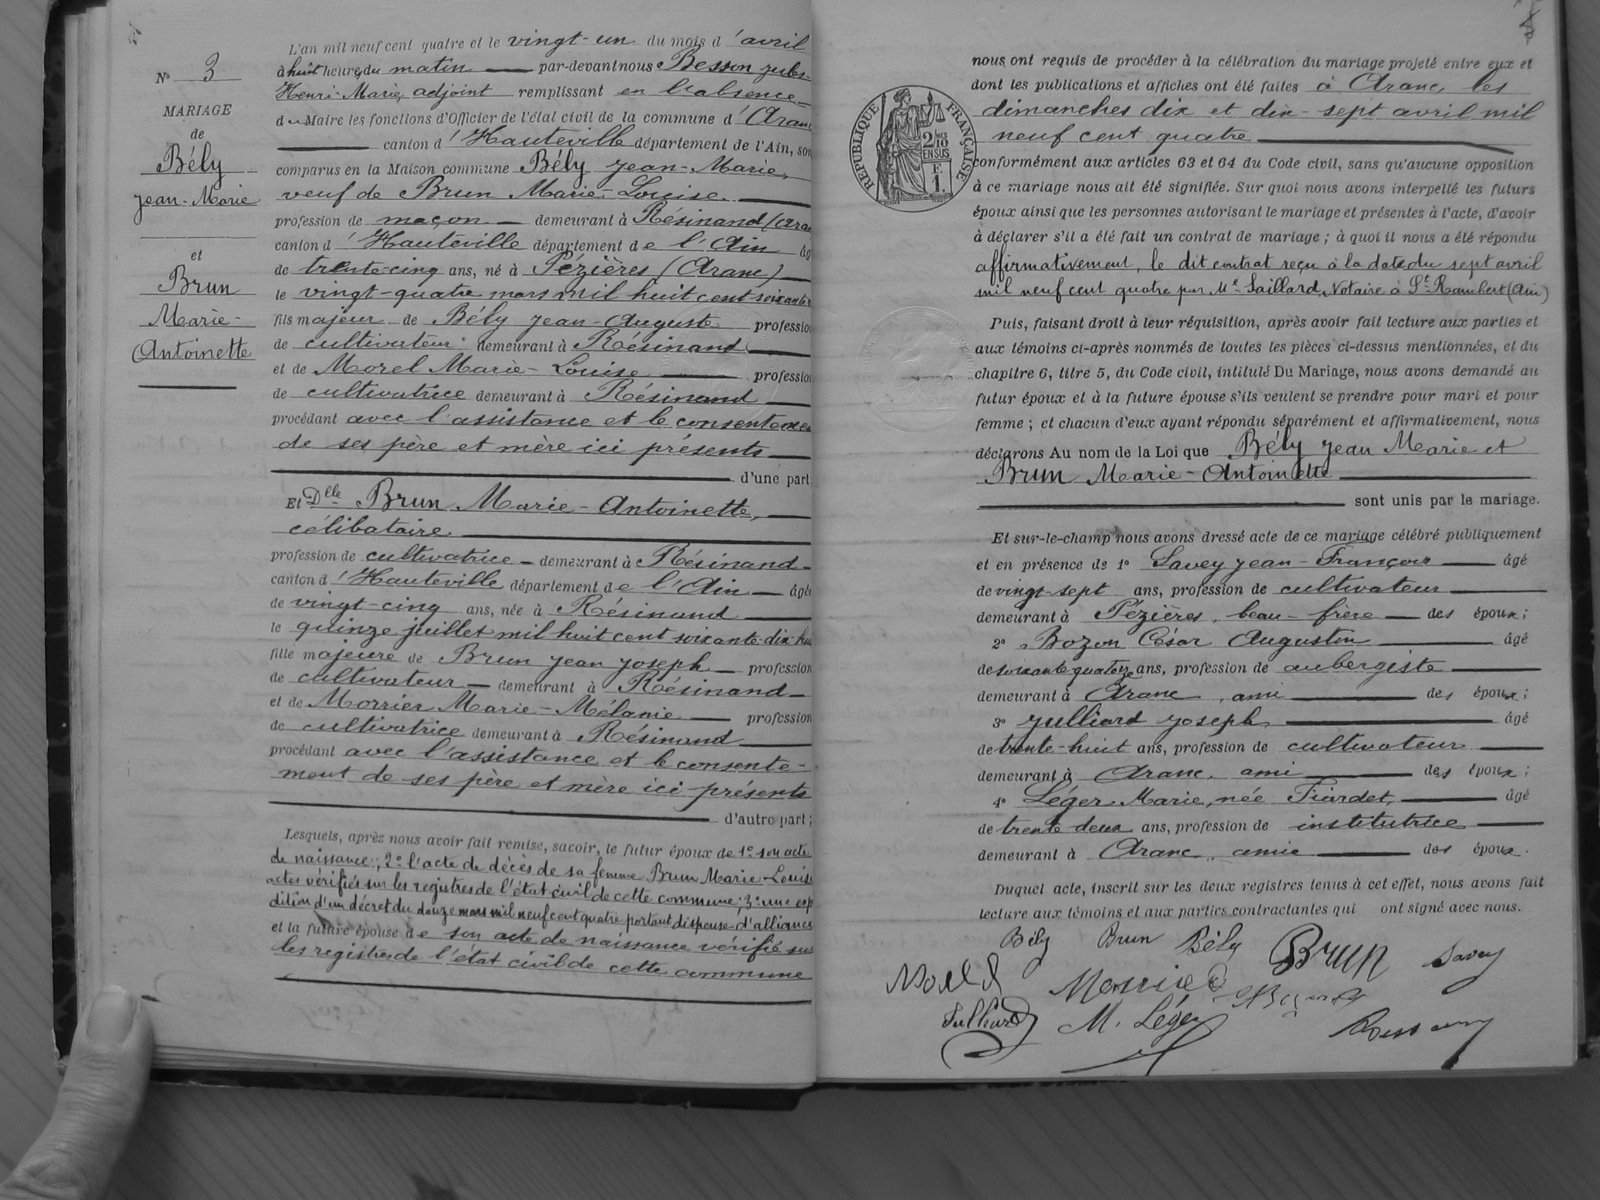 N° 3
MARIAGE
de
Bély
Jean-Marie
et
Brun
Marie-
Antoinette
L'an mil neuf cent quatre et le vingt-un du mois d'avril
à huit heures du matin par-devant nous Besson Jules
Henri-Marie, adjoint remplissant en l'absence
du Maire les fonctions d'Officier de l'état civil de la commune d'Aranc
canton d'Hauteville département de l'Ain, son
comparus en la Maison commune Bély Jean-Marie,
veuf de Brun Marie-Louise
profession de maçon demeurant à Résinand (Aran
canton d'Hauteville département de l'Ain âg
de trente-cinq ans, né à Pézières (Aranc)
le vingt-quatre mars mil huit cent soixante
fils majeur de Bély Jean-Auguste professio
de cultivateur demeurant à Résinand
et de Morel Marie-Louise professio
de cultivatrice demeurant à Résinand
procédant avec l'assistance et le consenteme
de ses père et mère ici présents
d'une part
Et Dlle Brun Marie-Antoinette,
célibataire
profession de cultivatrice demeurant à Résinand
canton d'Hauteville département de l'Ain âgé
de vingt-cinq ans, née à Résinand
le quinze juillet mil huit cent soixante-dix-hui
fille majeure de Brun Jean Joseph profession
de cultivateur demeurant à Résinand
et de Morrier Marie-Mélanie profession
de cultivatrice demeurant à Résinand
procédant avec l'assistance et le consente-
ment de ses père et mère ici présents
d'autre part;
Lesquels, après nous avoir fait remise, savoir, le futur époux de 1° son acte
de naissance; 2° l'acte de décès de sa femme Brun Marie-Louise
actes vérifiés sur les registres de l'état civil de cette commune; 3° une exp
dition d'un décret du douze mars mil neuf cent quatre portant dispense d'alliance
et la future épouse de son acte de naissance vérifié sur
les registres de l'état civil de cette commune
RÉPUBLIQUE FRANÇAISE
2/10 EN SUS
F. 1.
nous ont requis de procéder à la célébration du mariage projeté entre eux et
dont les publications et affiches ont été faites à Aranc, les
dimanches dix et dix-sept avril mil
neuf cent quatre
conformément aux articles 63 et 64 du Code civil, sans qu'aucune opposition
à ce mariage nous ait été signifiée. Sur quoi nous avons interpellé les futurs
époux ainsi que les personnes autorisant le mariage et présentes à l'acte, d'avoir
à déclarer s'il a été fait un contrat de mariage; à quoi il nous a été répondu
affirmativement, le dit contrat reçu à la date du sept avril
mil neuf cent quatre par Me Saillard, Notaire à St-Rambert (Ain)
Puis, faisant droit à leur réquisition, après avoir fait lecture aux parties et
aux témoins ci-après nommés de toutes les pièces ci-dessus mentionnées, et du
chapitre 6, titre 5, du Code civil, intitulé Du Mariage, nous avons demandé au
futur époux et à la future épouse s'ils veulent se prendre pour mari et pour
femme; et chacun d'eux ayant répondu séparément et affirmativement, nous
déclarons Au nom de la Loi que Bély Jean Marie et
Brun Marie-Antoinette
sont unis par le mariage.
Et sur-le-champ nous avons dressé acte de ce mariage célébré publiquement
et en présence de 1° Savey Jean-François âgé
de vingt-sept ans, profession de cultivateur
demeurant à Pézières, beau-frère des époux;
2° Bozon César Augustin âgé
de soixante quatorze ans, profession de aubergiste
demeurant à Aranc, ami des époux;
3° Julliard Joseph âgé
de trente-huit ans, profession de cultivateur
demeurant à Aranc, ami des époux;
4° Léger Marie, née Tiardet, âgé
de trente deux ans, profession de institutrice
demeurant à Aranc, amie des époux.
Duquel acte, inscrit sur les deux registres tenus à cet effet, nous avons fait
lecture aux témoins et aux parties contractantes qui ont signé avec nous.
Bély Brun Bély Brun Savey
Julliard M. Léger